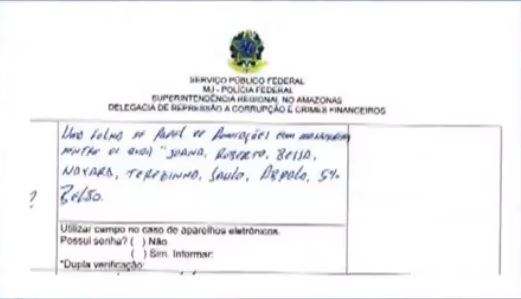 SERVIÇO PÚBLICO FEDERAL
MJ - POLÍCIA FEDERAL
SUPERINTENDÊNCIA REGIONAL NO AMAZONAS
DELEGACIA DE REPRESSÃO A CORRUPÇÃO E CRIMES FINANCEIROS
UMA FOLHA DE PAPEL DE ANOTAÇÕES COM
"JOANA, ROBERTO, BESSA,
NAYARA, TEREZINHA, SAULO, 5%
?
Utilizar campo no caso de aparelhos eletrônicos.
Possui senha? ( ) Não
( ) Sim. Informar:
*Dupla verificação: